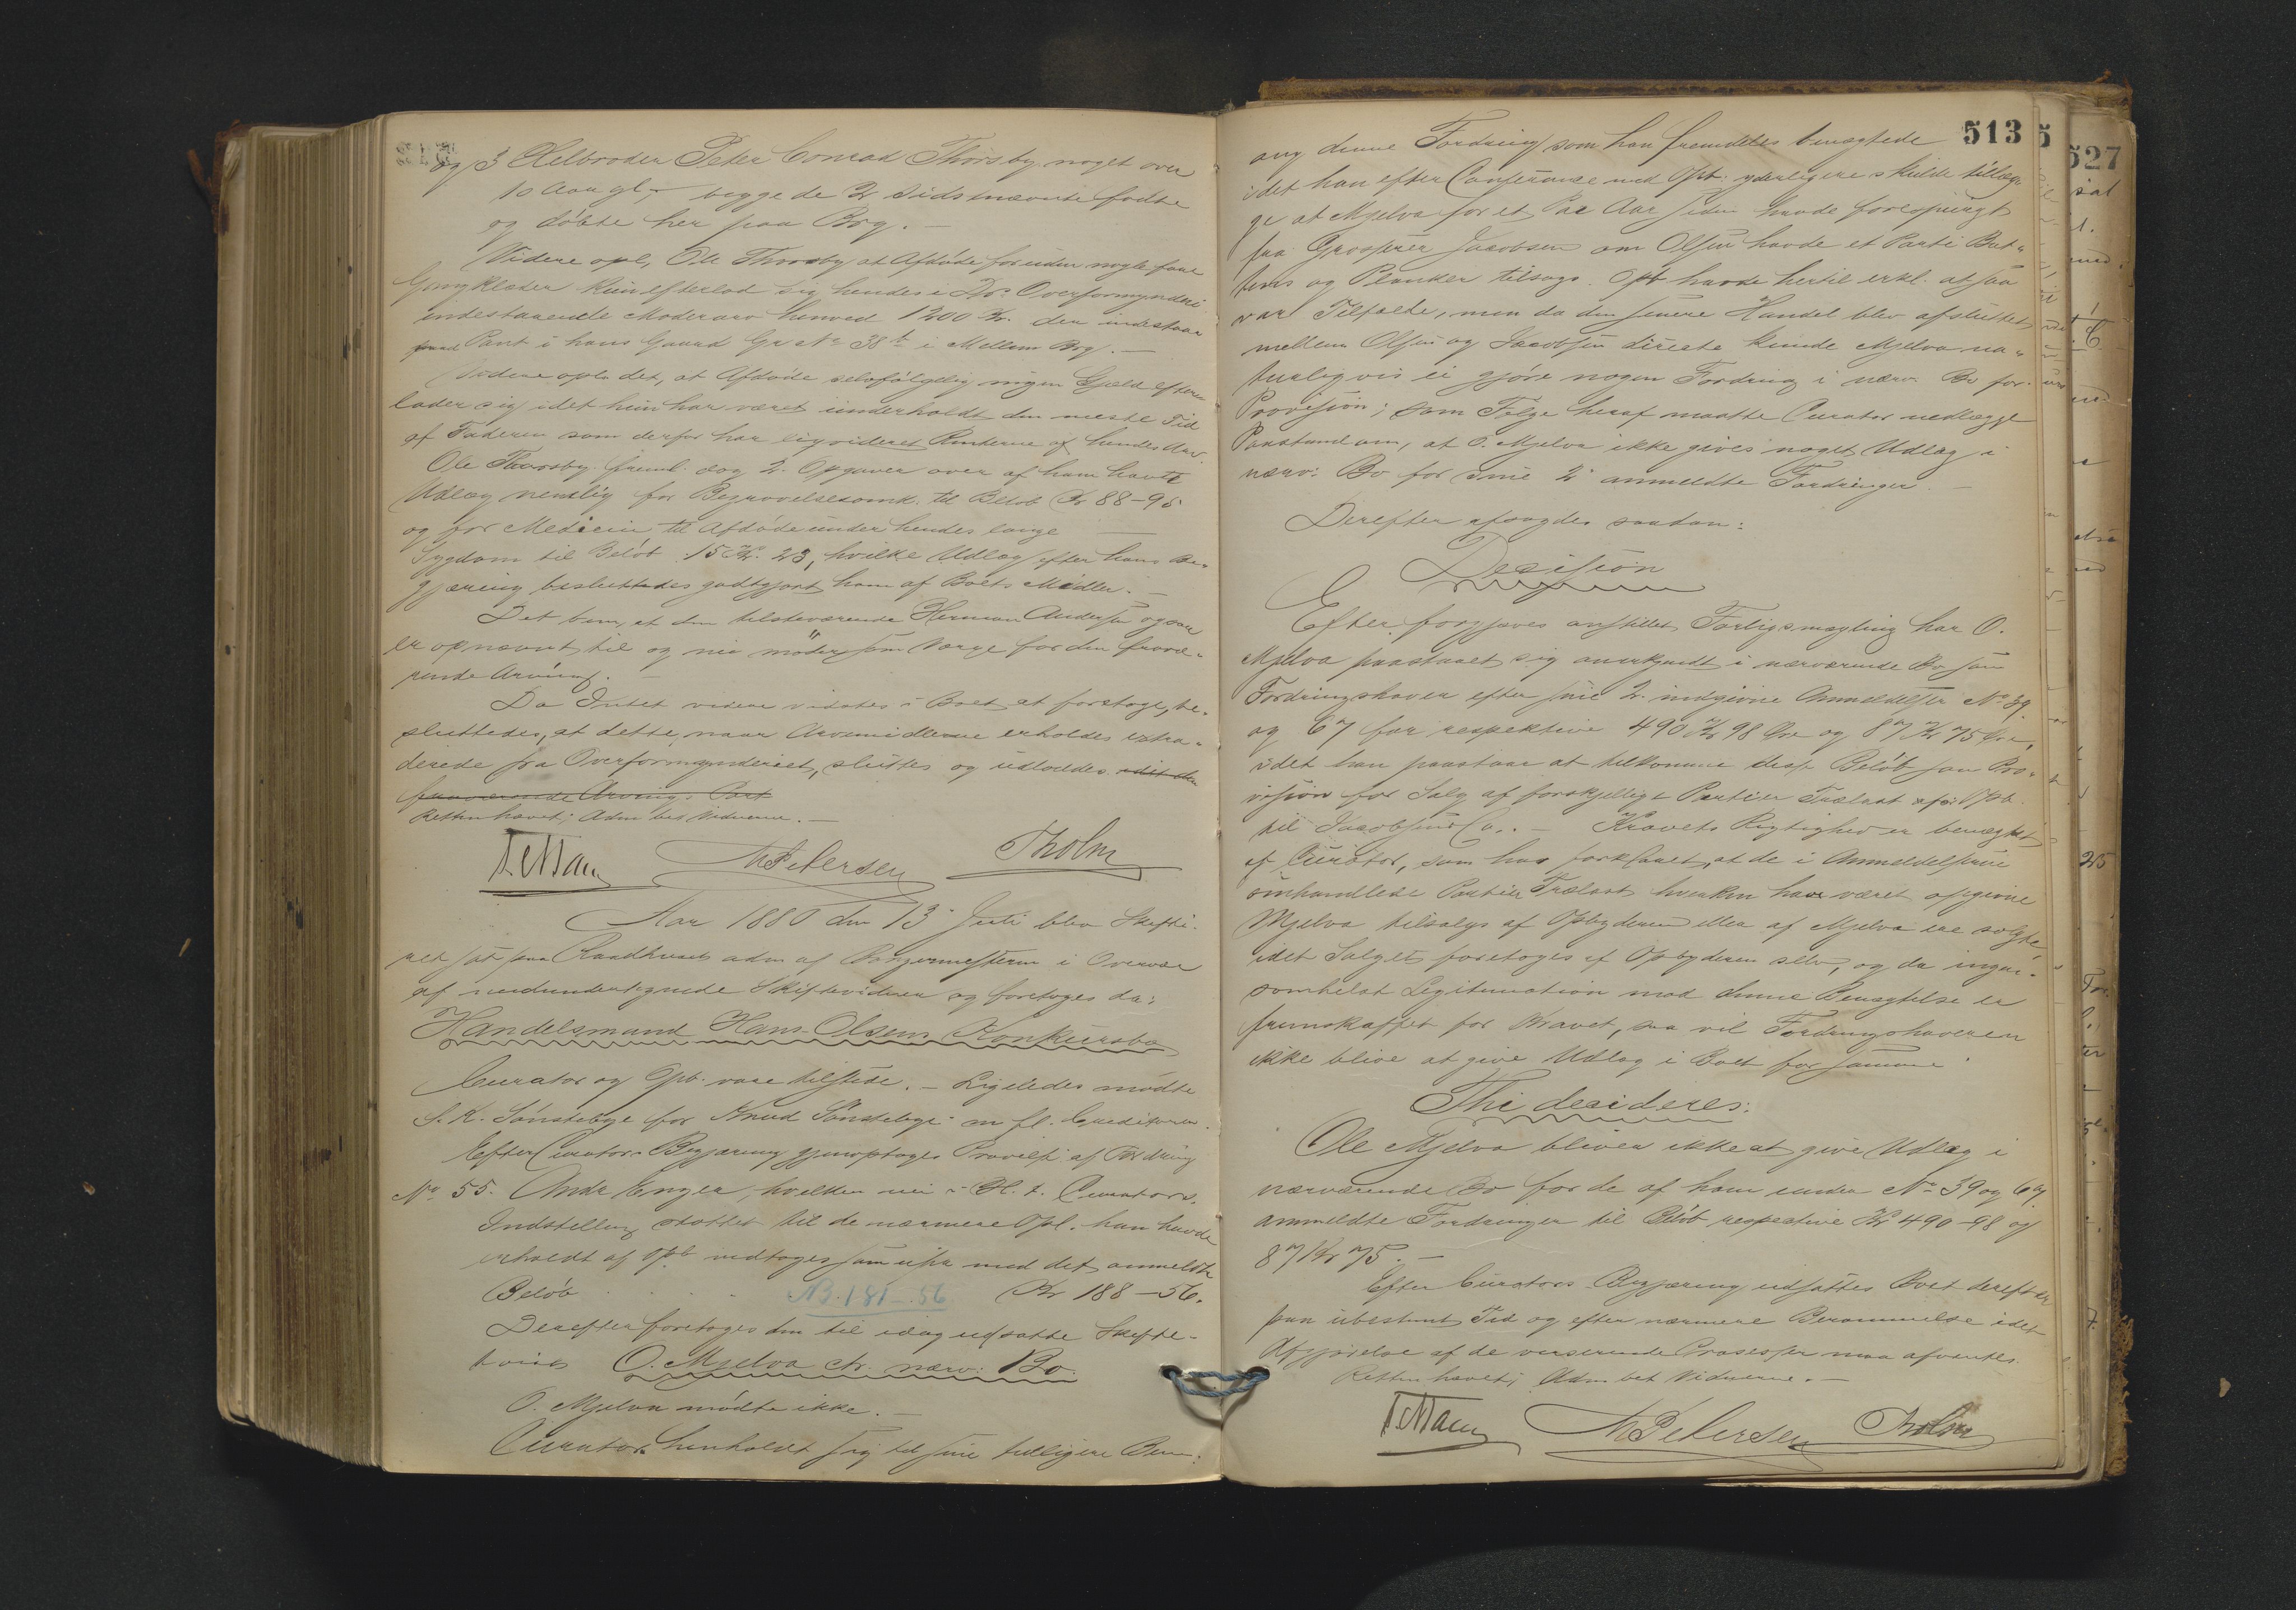 og 3 Helbroder Peter Conrad Thorsby noget over
10 Aar gl, begge de 2 sidstnævnte fødte
og døbte her paa Brg.
Videre opl, Ole Thorsby at Afdøde foruden nogle faa
Gangklæder kun efterlod sig hendes i Overformynderi
indestaaende Mødrearv henved 1200 Kr. der indestaar
Pant i hans Gaard Gr No 38 b i Mellem Brg.
Videre opl. det, at Afdøde selvfølgelig ingen Gjæld efter
lader sig idet hun har været underholdt den meste Tid
af Faderen som derfor har liqvideret Renterne af hendes Arv
Ole Thorsby freml. dog 2 Opgaver over af ham havte
Udlæg nemlig for Begravelsesomk. til Beløb Kr 88-95
og for Medicin til Afdøde under hendes lange
Sygdom til Beløb 15 Kr. 23, hvilke Udlæg efter hans Be-
gjæring besluttedes godtgjort ham af Boets Midler.
Det bem, at den tilstedeværende Herman Andersen ogsaa
er opnævnt til og nu møder som Værge for den fravæ-
rende Arving.
Da Intet videre vidstes i Boet at foretage, be-
sluttedes, at dette, naar Arvemidlerne erholdes extra-
derede fra Overformynderiet, sluttes og udloddes idet den
fraværende Arvings Part
Retten hævet; Adm bet Vidnerne.
MPetersen Tholm
Aar 1880 den 13 Juli blev Skifte-
ret sat paa Raadhuset adm af Borgermesteren i Overvær
af medundertegnede Skiftevidner og foretoges da:
Handelsmand Hans Olsens Konkursbo
Curator og Opb. vare tilstede. - Ligeledes mødte
S. K. Sønstebye for Knud Sønstebye m fl. Creditorer.
Efter Curators Begjæring gjenoptoges Prøvelse af Fordring
No 55. Andr Enger, hvilken nu i H. t. Curators
Indstilling støttet til de nærmere Opl. han havde
erholdt af Opb. vedtoges som uprior med det anmeldte
Beløb . . . . NB. 181-56 Kr 188-56.
Derefter foretoges den til idag udsatte Skifte-
tvist O. Mjelva ctr. nærv: Bo.
O. Mjelva mødte ikke.
Curator henholdt sig til sine tidligere Bem.
513
ang denne Fordring som han fremdeles benægtede
idet han efter Conferance med Opb: yderligere skulde tillæg-
ge at Mjelva for et Par Aar siden havde forespurgt
fra Grosserer Jacobsen om Olsen havde et Parti Bat-
tens og Planker tilsags. Opb havde hertil erkl. at saa
var Tilfælde, men da den senere Handel blev afsluttet
mellem Olsen og Jacobsen directe kunde Mjelva na-
turligvis ei gjøre nogen Fordring i nærv. Bo for
Provision; som Følge heraf maatte Curator nedlægge
Paastand om, at O. Mjelva ikke gives noget Udlæg i
nærv: Bo for sine 2 anmeldte Fordringer.
Derefter afsagdes saadan:
Decision
Efter forgjæves anstillet Forligsmægling har O.
Mjelva paastaaet sig anerkjendt i nærværende Bo som
Fordringshaver efter sine 2 indgivne Anmeldelser No 39
og 67 for respektive 490 Kr 98 Øre og 87 Kr 75 Øre,
idet han paastaar at tilkomme disse Beløb som Pro-
vision for Salg af forskjellige Partier Trælast afr: Opb.
til Jacobsen & Co. - Kravets Rigtighed er benægtet
af Curator, som har forklaret, at de i Anmeldelserne
omhandlede Partier Trælast hverken have været opgivne
Mjelva tilsalgs af Opbyderen eller af Mjelva ere solgte
idet Salget foretoges af Opbyderen selv, og da ingen-
somhelst Legitimation mod denne Benægtelse er
fremskaffet for Kravet, saa vil Fordringshaveren
ikke blive at give Udlæg i Boet for samme
Thi decideres:
Ole Mjelva bliver ikke at give Udlæg i
nærværende Bo for de af ham under No 39 og 67
anmeldte Fordringer til Beløb respective Kr 490-98 og
87 Kr 75.
Efter Curators Begjæring udsattes Boet derefter
paa ubestemt Tid og efter nærmere Berammelse idet
Afgjørelse af de verserende Processer maa afventes.
Retten hævet; Adm bet Vidnerne.
MPetersen Tholm
527